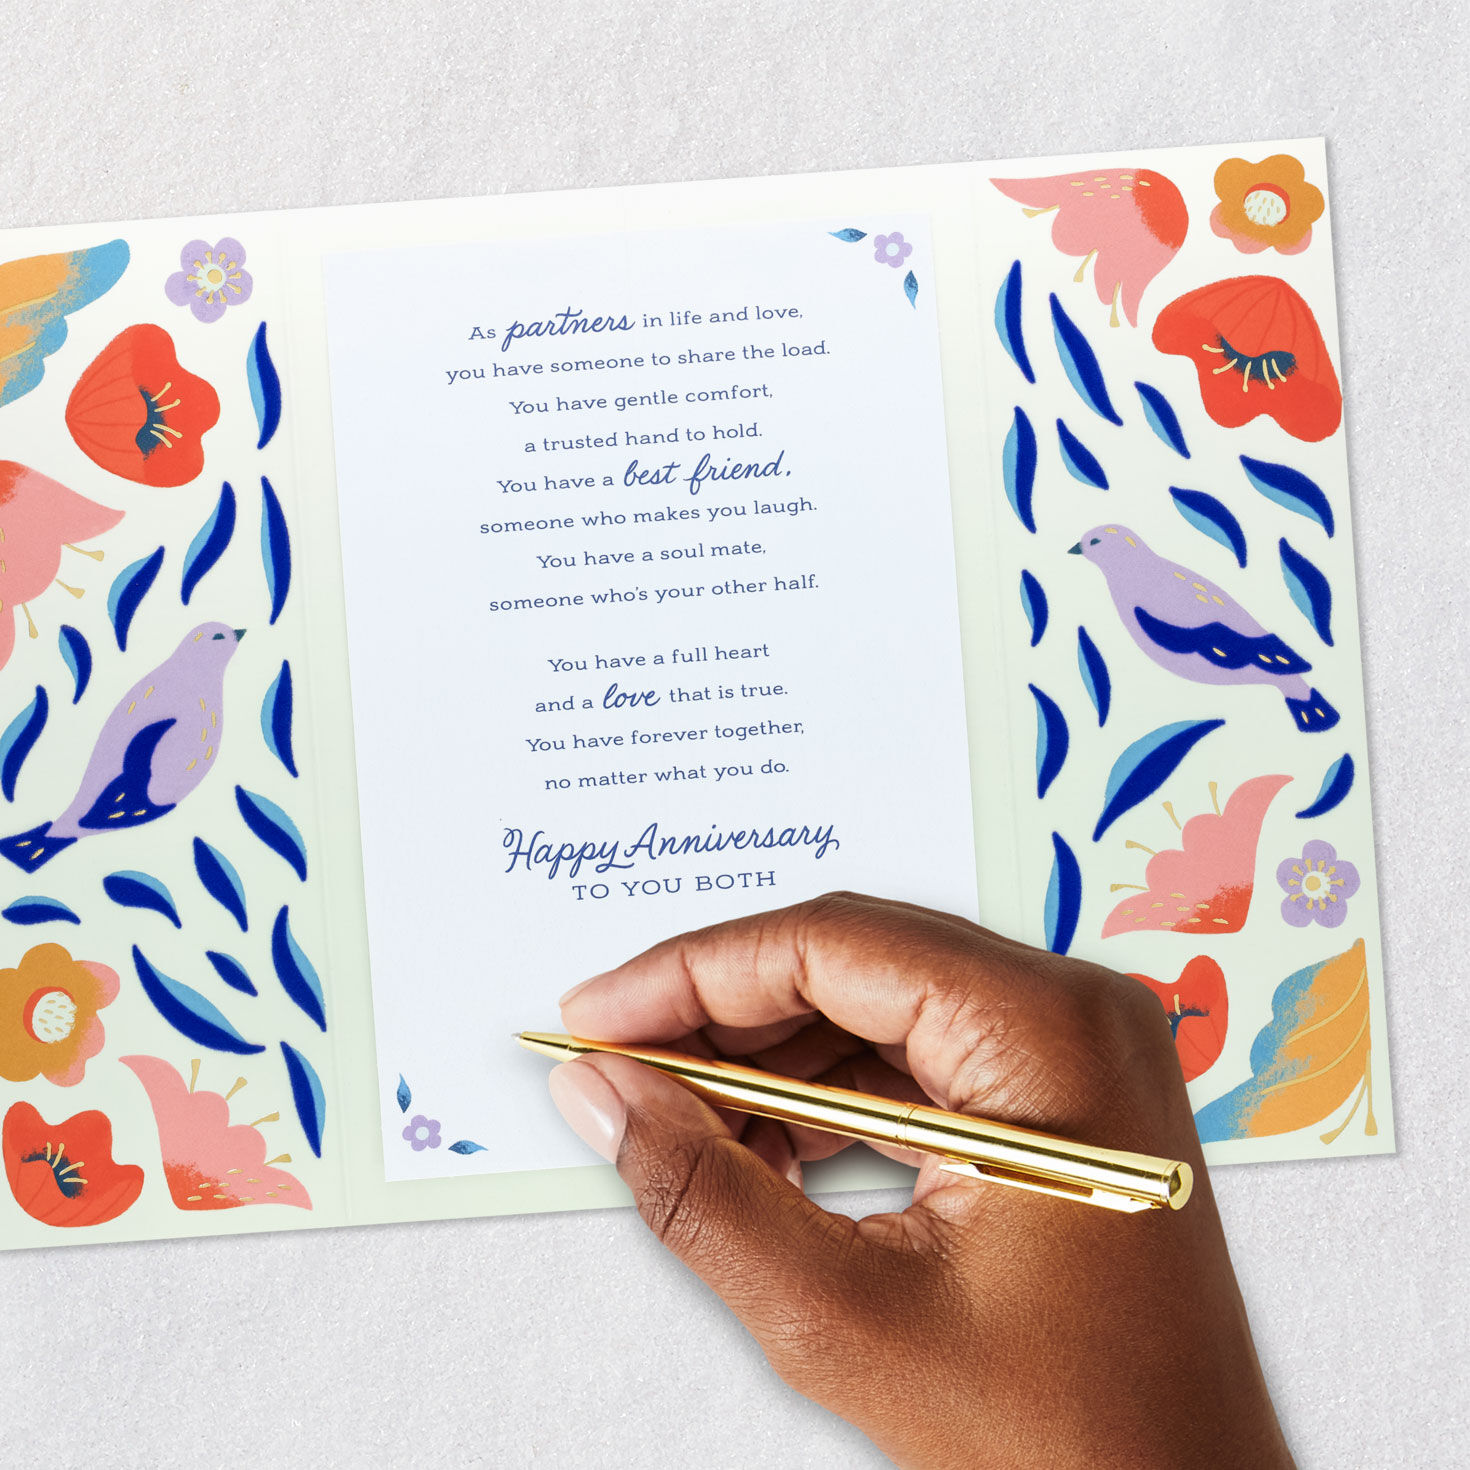 As partners in life and love,
you have someone to share the load.
You have gentle comfort,
a trusted hand to hold.
You have a best friend,
someone who makes you laugh.
You have a soul mate,
someone who's your other half.
You have a full heart
and a love that is true.
You have forever together,
no matter what you do.
Happy Anniversary
TO YOU BOTH